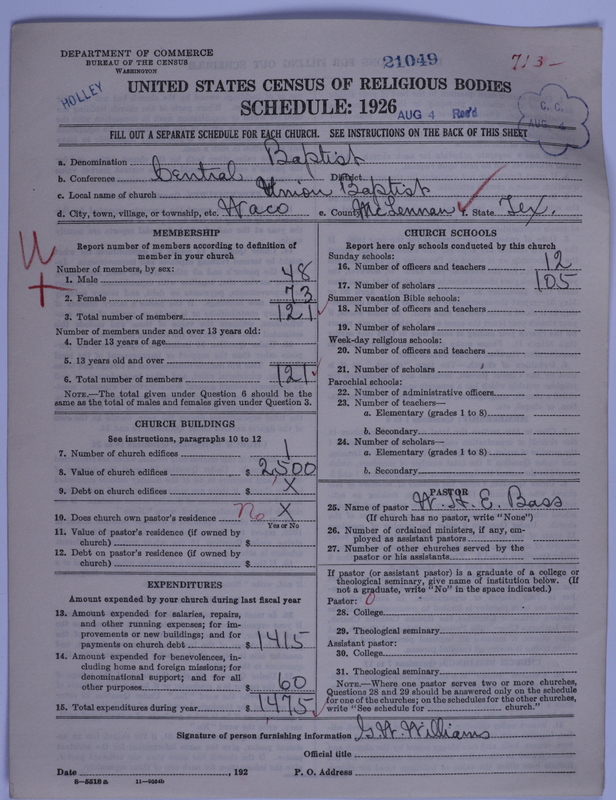 DEPARTMENT OF COMMERCE
BUREAU OF THE CENSUS
WASHINGTON
21049
713-
HOLLEY
UNITED STATES CENSUS OF RELIGIOUS BODIES
SCHEDULE: 1926
AUG 4 Rec'd
C. C.
AUG 4
FILL OUT A SEPARATE SCHEDULE FOR EACH CHURCH. SEE INSTRUCTIONS ON THE BACK OF THIS SHEET
a. Denomination Baptist
b. Conference Central District
c. Local name of church Union Baptist
d. City, town, village, or township, etc. Waco e. County McLennan f. State Tex.
MEMBERSHIP
Report number of members according to definition of
member in your church
Number of members, by sex:
1. Male 48
2. Female 73
3. Total number of members 121
Number of members under and over 13 years old:
4. Under 13 years of age
5. 13 years old and over
6. Total number of members 121
NOTE.—The total given under Question 6 should be the
same as the total of males and females given under Question 3.
CHURCH BUILDINGS
See instructions, paragraphs 10 to 12
7. Number of church edifices 1
8. Value of church edifices $ 2500
9. Debt on church edifices $ X
10. Does church own pastor's residence No X
Yes or No
11. Value of pastor's residence (if owned by
church) $
12. Debt on pastor's residence (if owned by
church) $
EXPENDITURES
Amount expended by your church during last fiscal year
13. Amount expended for salaries, repairs,
and other running expenses; for im-
provements or new buildings; and for
payments on church debt $ 1415
14. Amount expended for benevolences, in-
cluding home and foreign missions; for
denominational support; and for all
other purposes $ 60
15. Total expenditures during year $ 1475
CHURCH SCHOOLS
Report here only schools conducted by this church
Sunday schools:
16. Number of officers and teachers 12
17. Number of scholars 105
Summer vacation Bible schools:
18. Number of officers and teachers
19. Number of scholars
Week-day religious schools:
20. Number of officers and teachers
21. Number of scholars
Parochial schools:
22. Number of administrative officers
23. Number of teachers—
a. Elementary (grades 1 to 8)
b. Secondary
24. Number of scholars—
a. Elementary (grades 1 to 8)
b. Secondary
PASTOR
25. Name of pastor W. H. E. Bass
(If church has no pastor, write "None")
26. Number of ordained ministers, if any, em-
ployed as assistant pastors
27. Number of other churches served by the
pastor or his assistants
If pastor (or assistant pastor) is a graduate of a college or
theological seminary, give name of institution below. (If
not a graduate, write "No" in the space indicated.)
Pastor: 0
28. College
29. Theological seminary
Assistant pastor:
30. College
31. Theological seminary
NOTE.—Where one pastor serves two or more churches,
Questions 28 and 29 should be answered only on the schedule
for one of the churches; on the schedules for the other churches,
write "See schedule for church."
Signature of person furnishing information G. W. Williams
Official title
Date , 192 P. O. Address
8-5518a 11-9564b